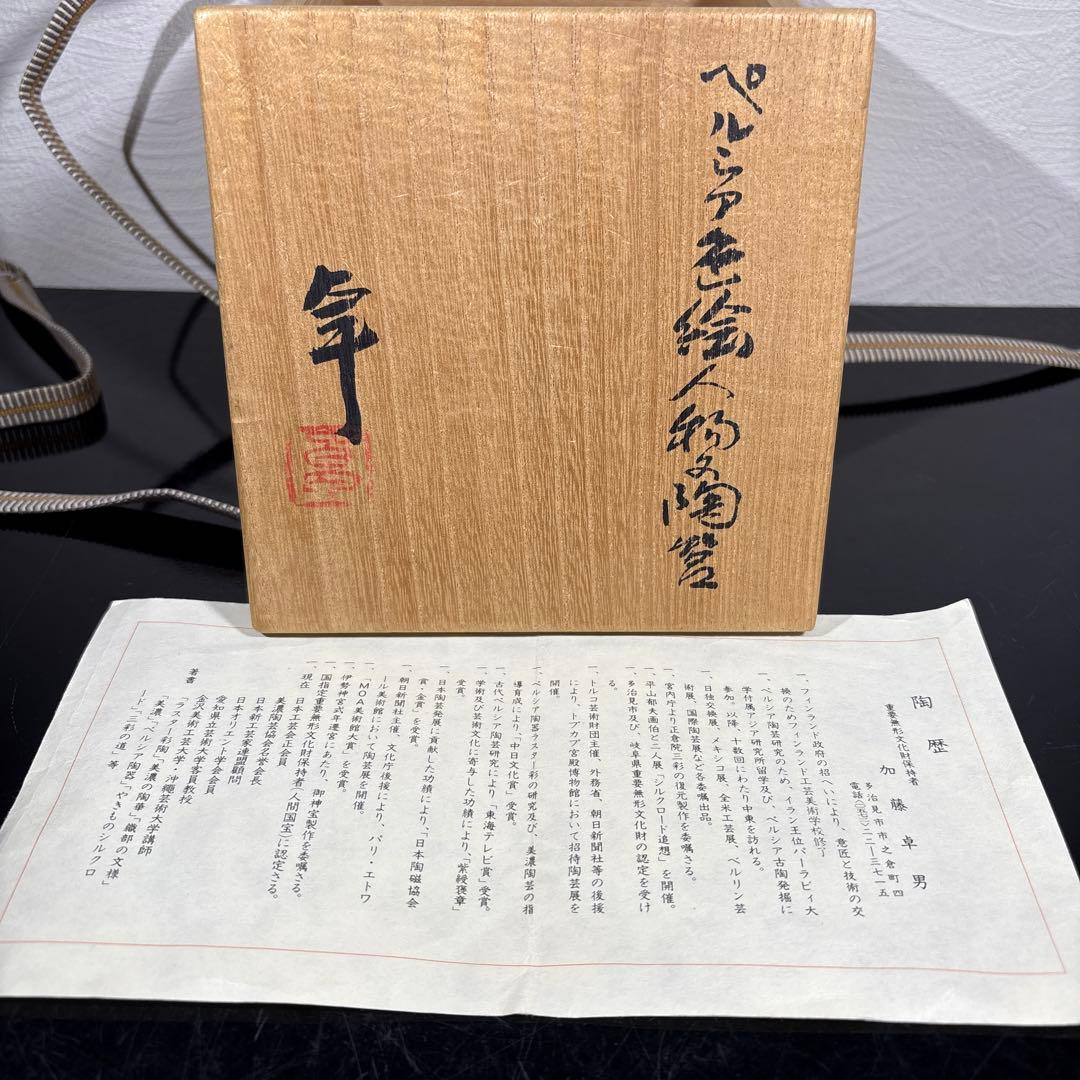 ペルシア色絵人物文陶筥
卓
陶歴
重要無形文化財保持者
加藤卓男
多治見市市之倉町四
電話(〇五七二)二二ー三七一五
一、フィンランド政府の招へいにより、意匠と技術の交
換のためフィンランド工芸美術学校修了
一、ペルシア陶芸研究のため、イラン王位パーラビィ大
学付属アジア研究所留学及び、ペルシア古陶発掘に
参加。以降、十数回にわたり中東を訪れる。
一、日独交換展、メキシコ展、全米工芸展、ベルリン芸
術展、国際陶芸展など各委嘱出品。
一、宮内庁より正倉院三彩の復元製作を委嘱さる。
一、平山郁夫画伯と二人展「シルクロード追想」を開催。
一、多治見市及び、岐阜県重要無形文化財の認定を受け
る。
一、トルコ芸術財団主催、外務省、朝日新聞社等の後援
により、トプカプ宮殿博物館において招待陶芸展を
開催。
一、ペルシア陶器ラスター彩の研究及び、美濃陶芸の指
導育成により、「中日文化賞」受賞。
一、古代ペルシア陶芸研究により、「東海テレビ賞」受賞。
一、学術及び芸術文化に寄与した功績により、「紫綬褒章」
受賞。
一、日本陶芸発展に貢献した功績により、「日本陶磁協会
賞・金賞」を受賞。
一、朝日新聞社主催、文化庁後援により、パリ・エトワ
ール美術館において陶芸展を開催。
一、「MOA美術館大賞」を受賞。
一、伊勢神宮式年遷宮にあたり、御神宝製作を委嘱さる。
一、国指定重要無形文化財保持者(人間国宝)に認定さる。
現在 日本工芸会正会員
美濃陶芸協会名誉会長
日本新工芸家連盟顧問
日本オリエント学会会員
愛知県立芸術大学講師
金沢美術工芸大学・沖縄芸術大学客員教授
著書 「ラスター彩陶」「美濃の陶華」「織部の文様」
「美濃」「ペルシア陶器」「やきものシルクロ
ード」「三彩の道」等